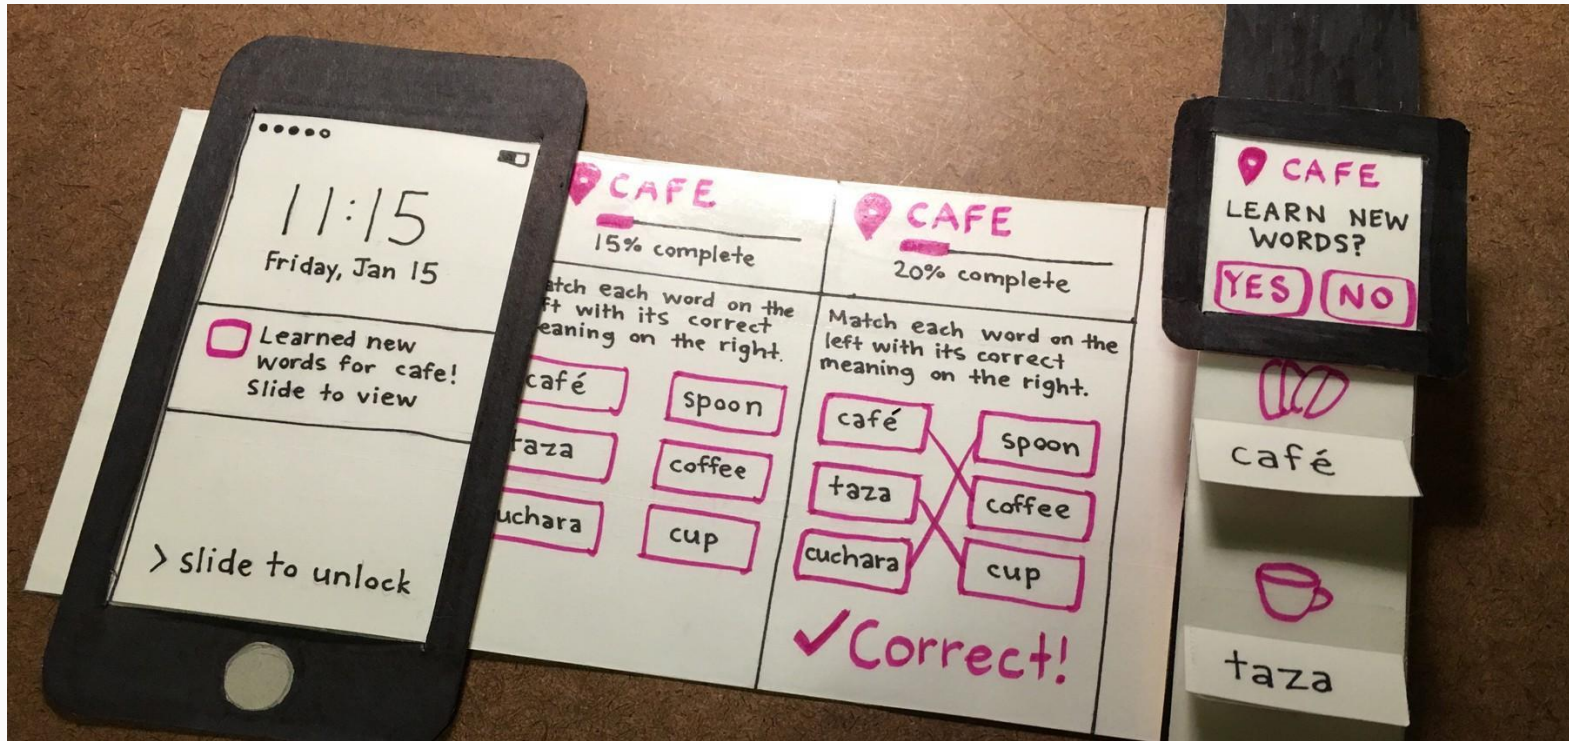 11:15
Friday, Jan 15
Learned new
words for cafe!
Slide to view
> slide to unlock
CAFE
15% complete
each word on the
with its correct
on the right.
café
spoon
coffee
cup
CAFE
20% complete
Match each word on the
left with its correct
meaning on the right.
café
spoon
taza
coffee
cuchara
cup
✓Correct!
CAFE
LEARN NEW
WORDS?
YES NO
café
taza